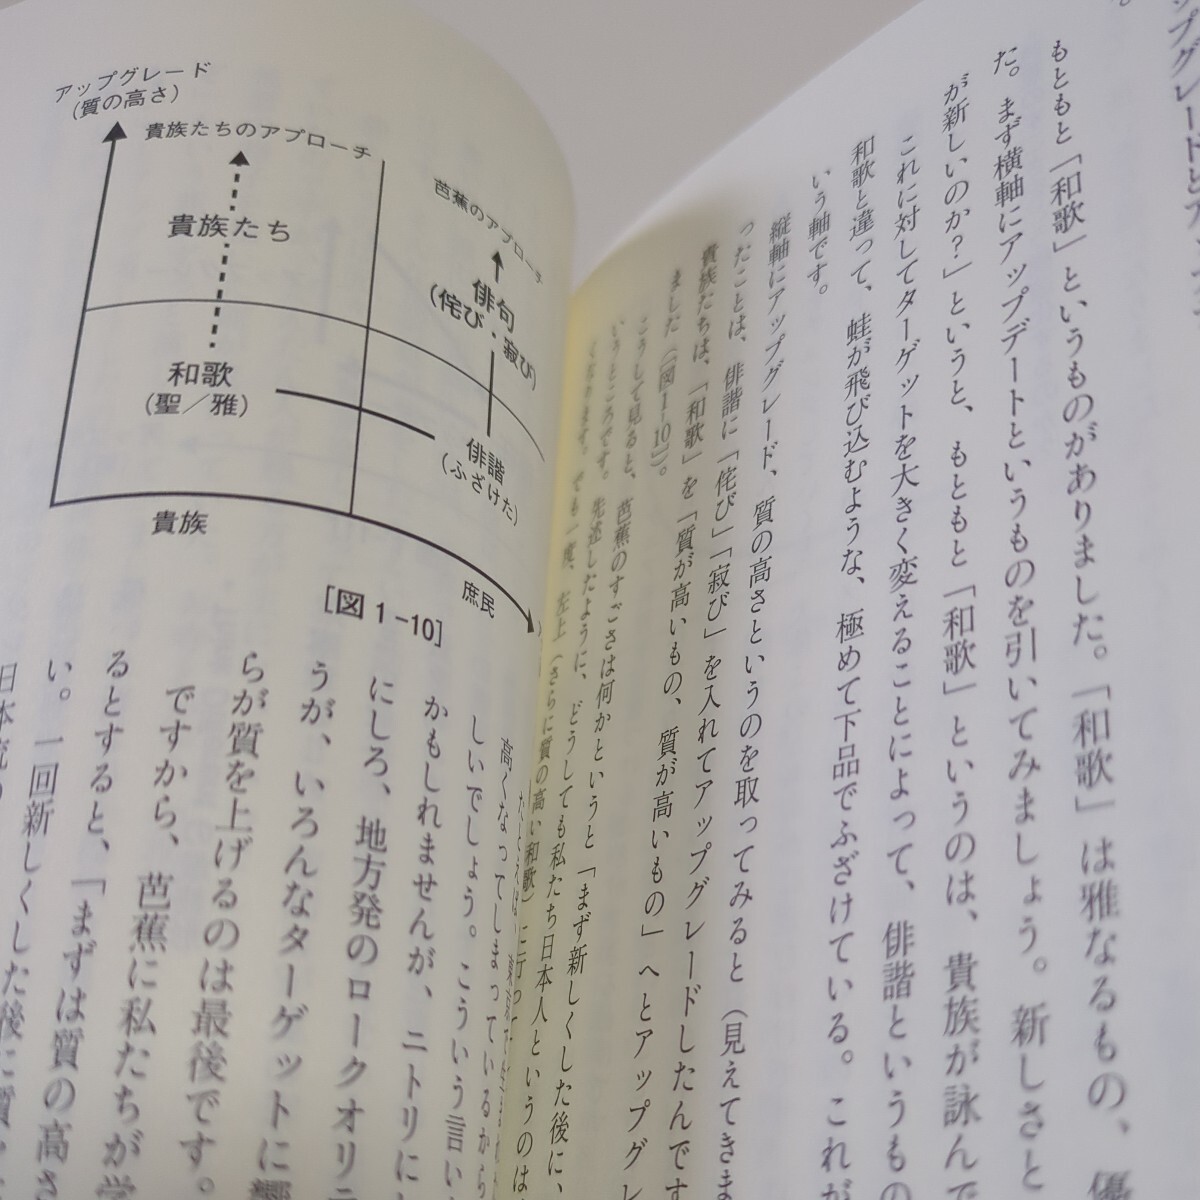 もともと「和歌」というものがありました。「和歌」は雅なるもの、優
た。まず横軸にアップデートというものを引いてみましょう。新しさと
が新しいのか？」というと、もともと「和歌」というのは、貴族が詠んで
これに対してターゲットを大きく変えることによって、俳諧というもの
和歌と違って、蛙が飛び込むような、極めて下品でふざけている。これが
いう軸です。
縦軸にアップグレード、質の高さというのを取ってみると（見えてきま
ったことは、俳諧に「侘び」「寂び」を入れてアップグレードしたんです
貴族たちは、「和歌」を「質が高いもの、質が高いもの」へとアップグレ
ました（［図1-10］）。
こうして見ると、芭蕉のすごさは何かというと「まず新しくした後に、
いうところです。先述したように、どうしても私たち日本人というのは
でも一度、左上（さらに質の高い和歌）に行って
アップグレード
（質の高さ）
貴族たちのアプローチ
芭蕉のアプローチ
貴族たち
俳句
（侘び・寂び）
和歌
（聖／雅）
俳諧
（ふざけた）
貴族
庶民
［図 1-10］
高くなってしまっているから
しいでしょう。こういう言い
かもしれませんが、ニトリに
にしろ、地方発のロークオリ
うが、いろんなターゲットに響
らが質を上げるのは最後です。
ですから、芭蕉に私たちが学
るとすると、「まずは質の高さ
い。一回新しくした後に質